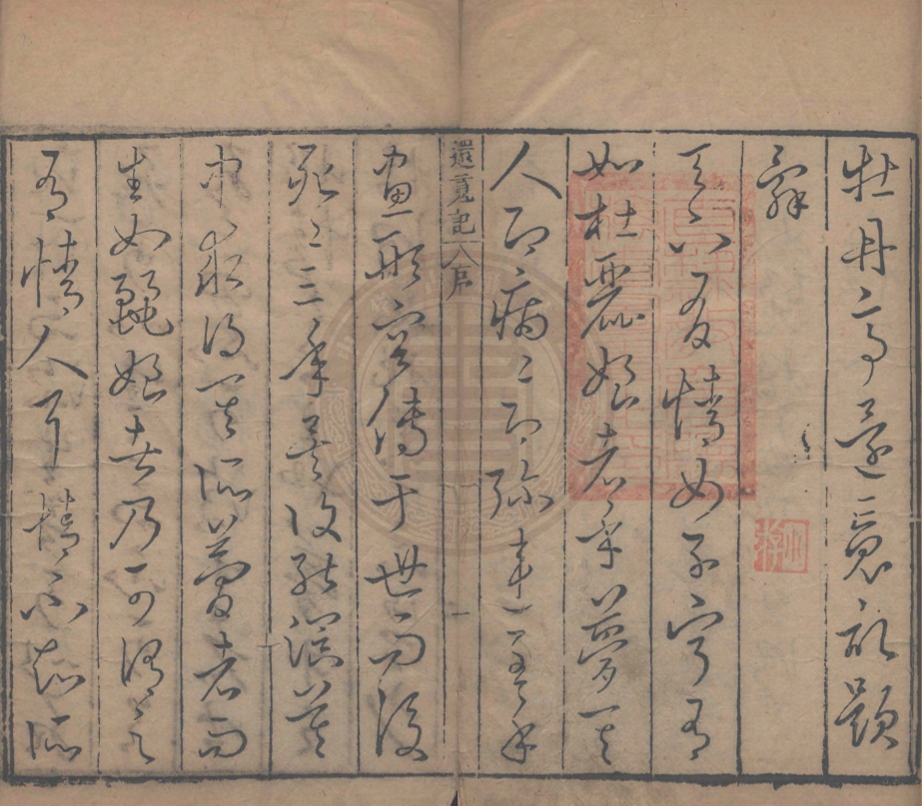 牡丹亭還魂記題
辭
天下有情女子寧有
如杜麗娘者乎夢其
人即病〻即彌連至手
還魂記 序 一
畫形容傳于世而後
死〻三年矣復能溟莫
中求得其所夢者而
生如麗娘者乃可謂之
有情人耳情不知所